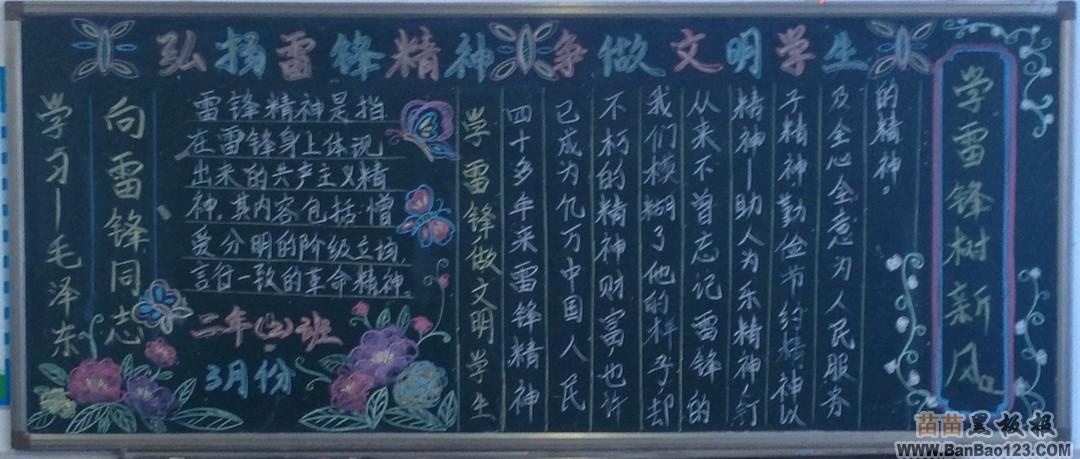 弘扬雷锋精神 争做文明学生
向雷锋同志
学习—毛泽东
雷锋精神是指
在雷锋身上体现
出来的共产主义精
神,其内容包括:憎
爱分明的阶级立场,
言行一致的革命精神。
二年(2)班
3月份
学雷锋做文明学生
四十多年来雷锋精神
已成为亿万中国人民
不朽的精神财富,也许
我们模糊了他的样子却
从来不曾忘记雷锋的
精神—助人为乐精神,钉
子精神勤俭节约精神以
及全心全意为人民服务
的精神。
学雷锋树新风
苗苗黑板报
www.BanBao123.COM